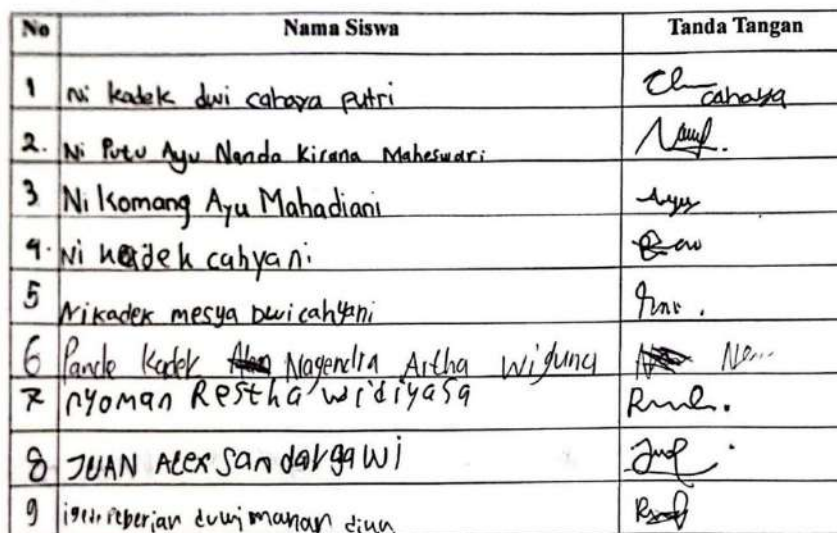 No Nama Siswa Tanda Tangan
1 Ni kadek dwi cahaya putri cahaya
2. Ni Putu Ayu Nanda Kirana Maheswari
3 Ni Komang Ayu Mahadiani Ayu
4. Ni Kadek cahyani
5 Ni kadek mesya Dwi cahyani
6 Pande Kadek Nagendra Artha Wiguna
7 nyoman Restha widiyasa
8 JUAN Alex Sandargawi
9